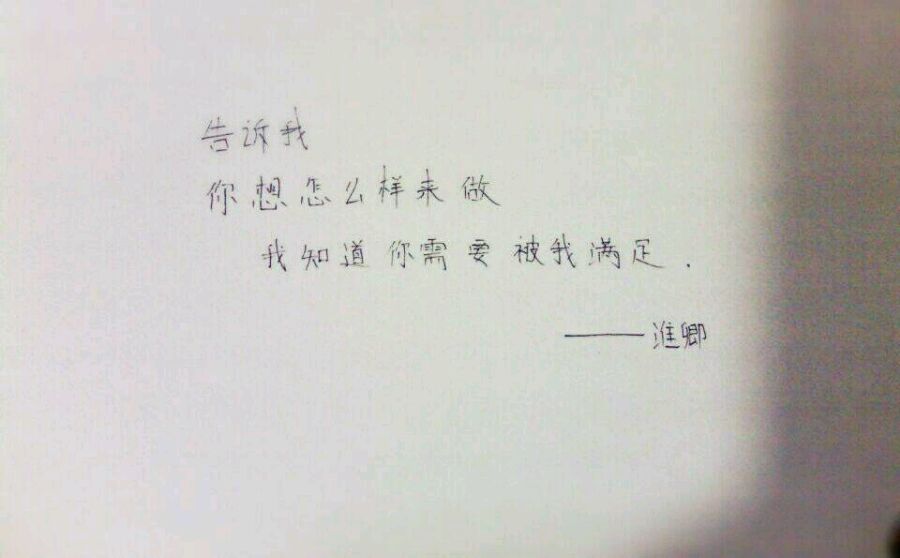 告诉我
你想怎么样来做
我知道你需要被我满足.
——淮卿